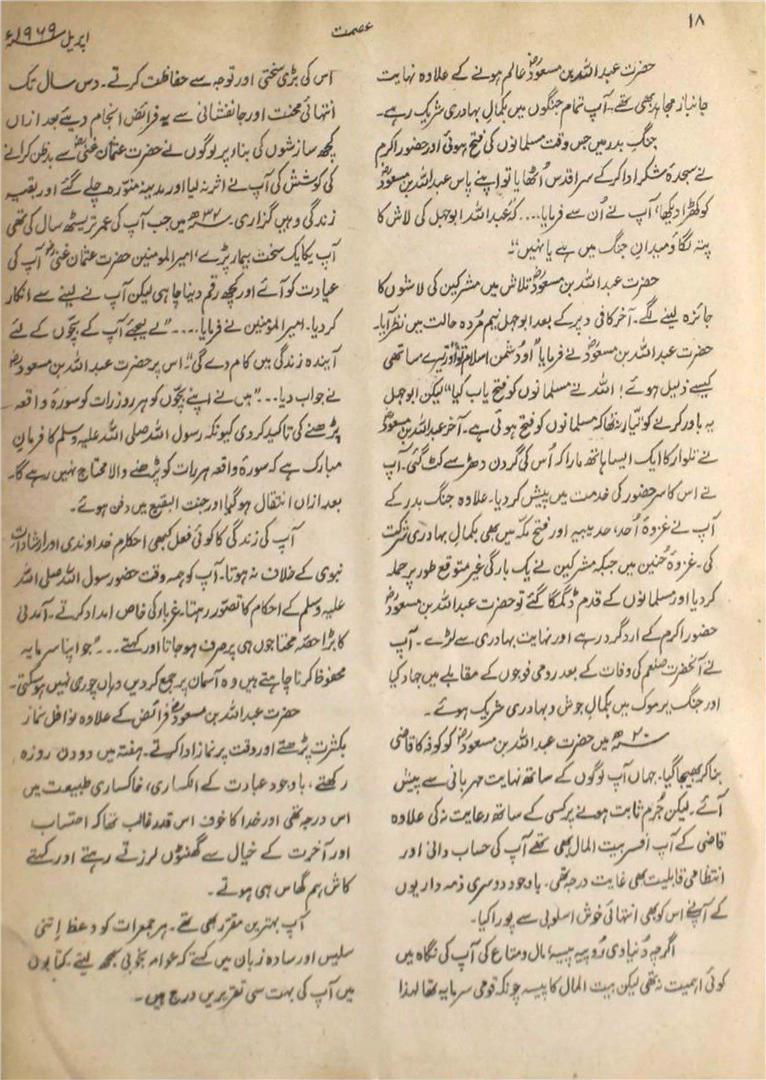 ۱۸
عصمت
اپریل ۱۹۶۹ء
حضرت عبداللہ بن مسعودؓ عالم ہونے کے علاوہ نہایت
جانباز مجاہد بھی تھے۔ آپ تمام جنگوں میں بکمالِ بہادری شریک رہے۔
جنگِ بدر میں جس وقت مسلمانوں کی فتح ہوئی اور حضور اکرم
نے سجدۂ شکر ادا کر کے سرِ اقدس اُٹھایا تو اپنے پاس عبداللہ بن مسعودؓ
کو کھڑا دیکھا، آپ نے اُن سے فرمایا.... کہ عبداللہ ابوجہل کی لاش کا
پتہ لگاؤ میدانِ جنگ میں ہے یا نہیں"۔
حضرت عبداللہ بن مسعودؓ تلاش میں مشرکین کی لاشوں کا
جائزہ لینے لگے۔ آخر کافی دیر کے بعد ابوجہل نیم مُردہ حالت میں نظر آیا۔
حضرت عبداللہ بن مسعودؓ نے فرمایا "او دشمنِ اسلام تو اور تیرے ساتھی
کیسے ذلیل ہوئے! اللہ نے مسلمانوں کو فتح یاب کیا" لیکن ابوجہل
یہ باور کرنے کو تیار نہ تھا کہ مسلمانوں کو فتح ہوئی ہے۔ آخر عبداللہ بن مسعودؓ
نے تلوار کا ایک ایسا ہاتھ مارا کہ اُس کی گردن دھڑ سے کٹ گئی۔ آپ
نے اس کا سر حضور کی خدمت میں پیش کر دیا۔ علاوہ جنگ بدر کے
آپ نے غزوۂ اُحد، حدیبیہ اور فتح مکہ میں بھی بکمالِ بہادری شرکت
کی۔ غزوۂ حُنین میں جبکہ مشرکین نے یک بارگی غیر متوقع طور پر حملہ
کر دیا اور مسلمانوں کے قدم ڈگمگا گئے تو حضرت عبداللہ بن مسعودؓ
حضور اکرم کے ارد گرد رہے اور نہایت بہادری سے لڑے۔ آپ
نے آنحضرت صلعم کی وفات کے بعد رومی فوجوں کے مقابلے میں جہاد کیا
اور جنگ یرموک میں بکمالِ جوش و بہادری شریک ہوئے۔
۲۰ھ میں حضرت عبداللہ بن مسعودؓ کو کوفہ کا قاضی
بنا کر بھیجا گیا۔ جہاں آپ لوگوں کے ساتھ نہایت مہربانی سے پیش
آئے۔ لیکن جُرم ثابت ہونے پر کسی کے ساتھ رعایت نہ کی علاوہ
قاضی کے آپ افسر بیت المال بھی تھے آپ کی حساب دانی اور
انتظامی قابلیت بھی غایت درجہ تھی۔ باوجود دوسری ذمہ داریوں
کے آپ نے اس کو بھی انتہائی خوش اسلوبی سے پورا کیا۔
اگرچہ دُنیاوی رُوپیہ پیسہ، مال و متاع کی آپ کی نگاہ میں
کوئی اہمیت نہ تھی لیکن بیت المال کا پیسہ چونکہ قومی سرمایہ تھا لہٰذا
اس کی بڑی سختی اور توجہ سے حفاظت کرتے۔ دس سال تک
انتہائی محنت اور جانفشانی سے یہ فرائض انجام دیئے بعد ازاں
کچھ سازشوں کی بناء پر لوگوں نے حضرت عثمان غنیؓ سے بدظن کرانے
کی کوشش کی آپ نے اثر نہ لیا اور مدینہ منورہ چلے گئے اور بقیہ
زندگی وہیں گزاری۔ ۳۲ھ میں جب آپ کی عمر تریسٹھ سال کی تھی
آپ یکایک سخت بیمار پڑے، امیر المومنین حضرت عثمان غنیؓ آپ کی
عیادت کو آئے اور کچھ رقم دینا چاہی لیکن آپ نے لینے سے انکار
کر دیا۔ امیر المومنین نے فرمایا.... "لے لیجئے آپ کے بچوں کے لئے
آیندہ زندگی میں کام دے گی"۔ اس پر حضرت عبداللہ بن مسعودؓ
نے جواب دیا... "میں نے اپنے بچّوں کو ہر روز رات کو سورۂ واقعہ
پڑھنے کی تاکید کر دی کیونکہ رسول اللہ صلی اللہ علیہ وسلم کا فرمانِ
مبارک ہے کہ سورۂ واقعہ ہر رات کو پڑھنے والا محتاج نہیں رہے گا۔
بعد ازاں انتقال ہو گیا اور جنت البقیع میں دفن ہوئے۔
آپ کی زندگی کا کوئی فعل کبھی احکام خداوندی اور ارشادات
نبوی کے خلاف نہ ہوتا۔ آپ کو ہمہ وقت حضور رسول اللہ صلی اللہ
علیہ وسلم کے احکام کا تصوّر رہتا۔ غرباء کی خاص امداد کرتے۔ آمدنی
کا بڑا حصّہ محتاجوں ہی پر صرف ہو جاتا اور کہتے... "جو اپنا سرمایہ
محفوظ کرنا چاہتے ہیں وہ آسمان پر جمع کر دیں وہاں چوری نہیں ہو سکتی۔
حضرت عبداللہ بن مسعودؓ فرائض کے علاوہ نوافل نماز
بکثرت پڑھتے اور وقت پر نماز ادا کرتے۔ ہفتہ میں دو دن روزہ
رکھتے، باوجود عبادت کے انکساری، خاکساری طبیعت میں
اس درجہ تھی اور خدا کا خوف اس قدر غالب تھا کہ احتساب
اور آخرت کے خیال سے گھنٹوں لرزتے رہتے اور کہتے
کاش ہم گھاس ہی ہوتے۔
آپ بہترین مقرر بھی تھے۔ ہر جمعرات کو وعظ اِتنی
سلیس اور سادہ زبان میں کہتے کہ عوام بخوبی سمجھ لیتے۔ کتابوں
میں آپ کی بہت سی تقریریں درج ہیں۔